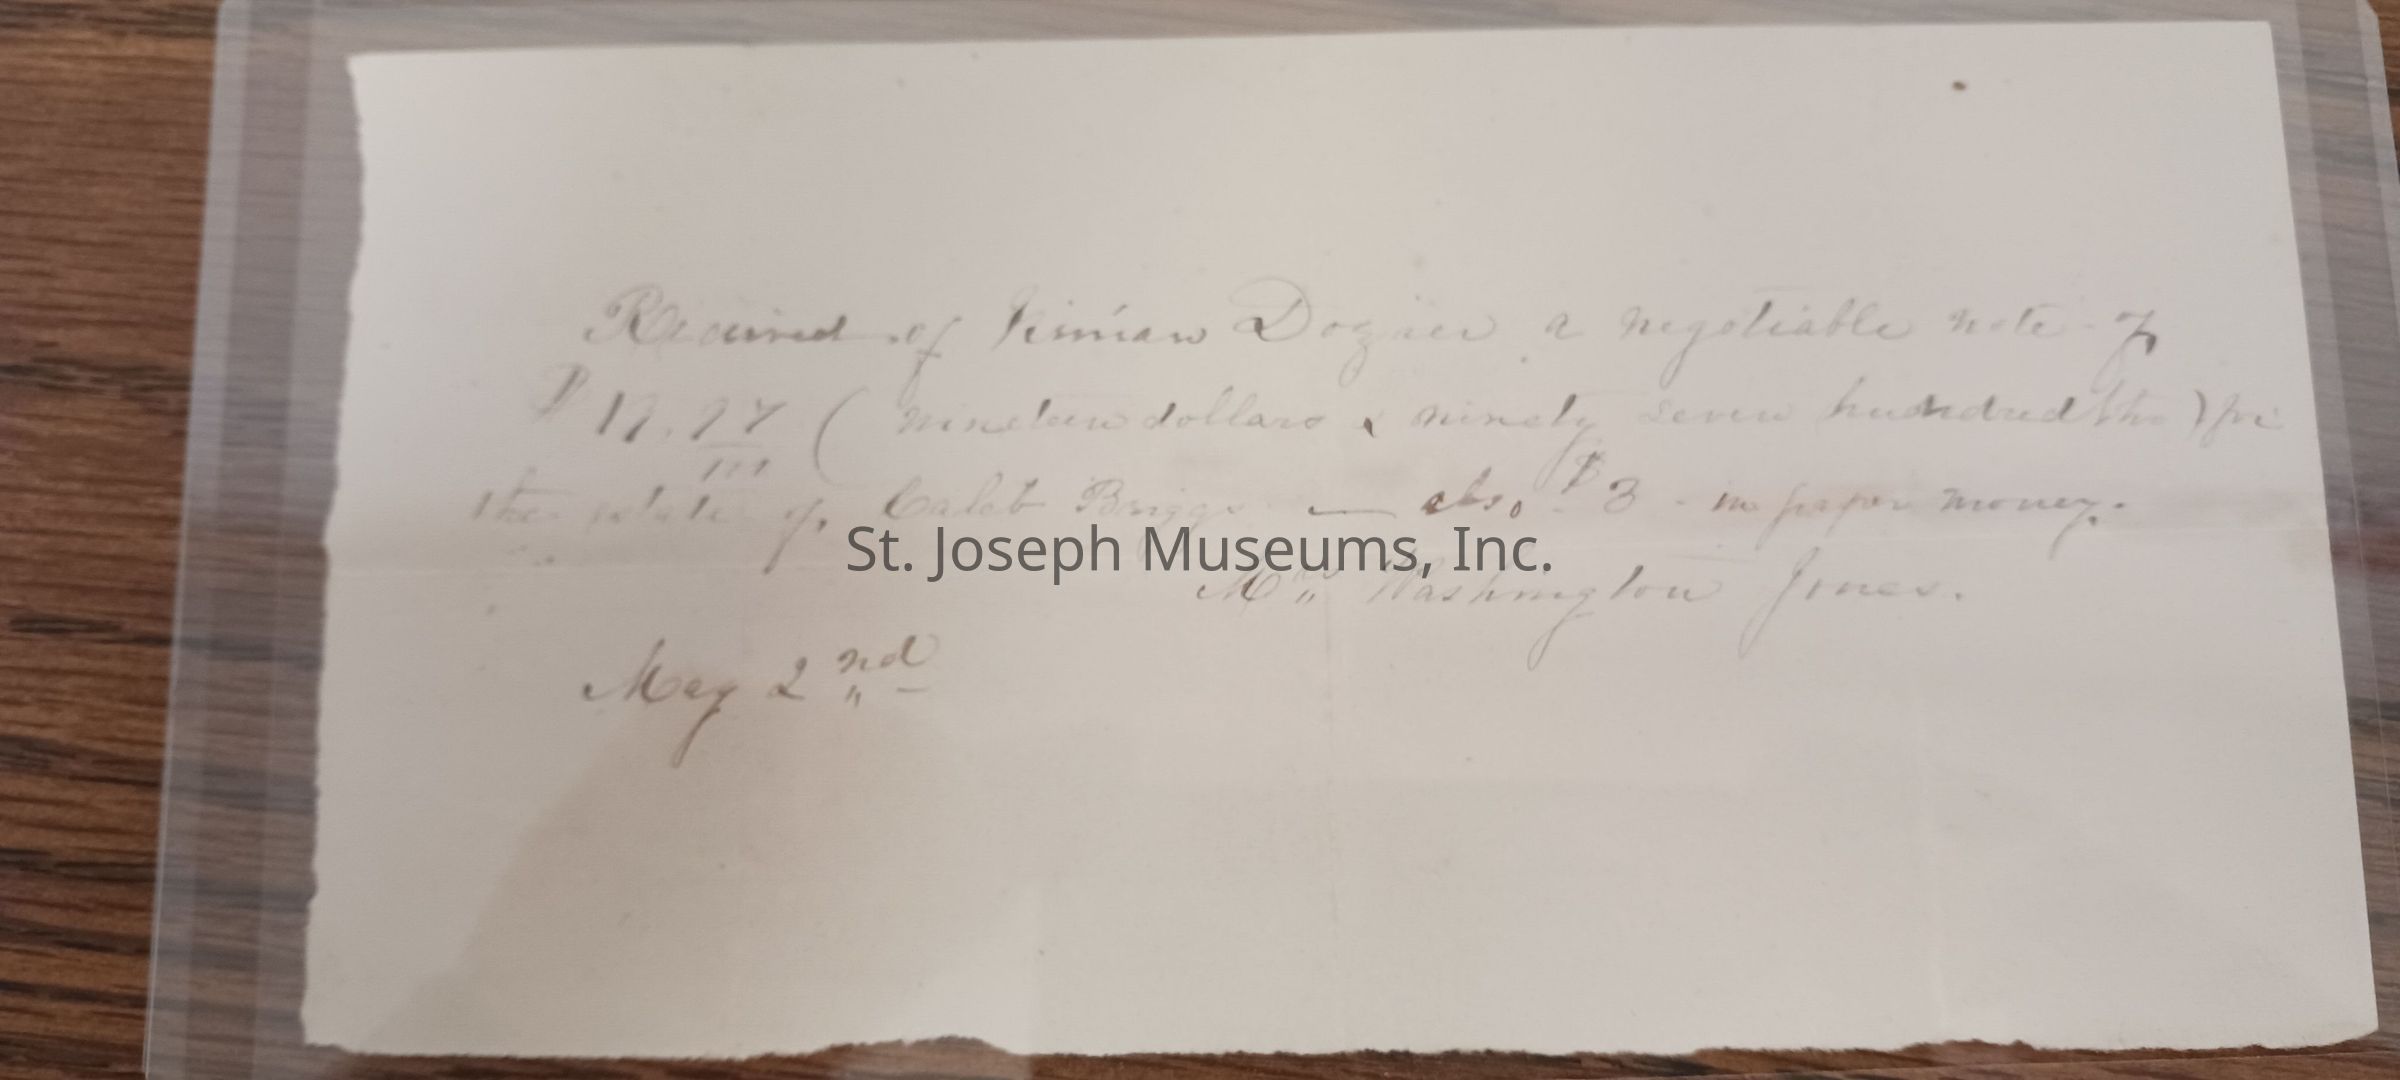 Received of Dozier a negotiable note of
$19.97/100 ( nineteen dollars & ninety seven hundredths ) for
the estate of Caleb Briggs — also $3 - in paper money.
St. Joseph Museums, Inc.
Mrs. Washington Jones.
May 2nd